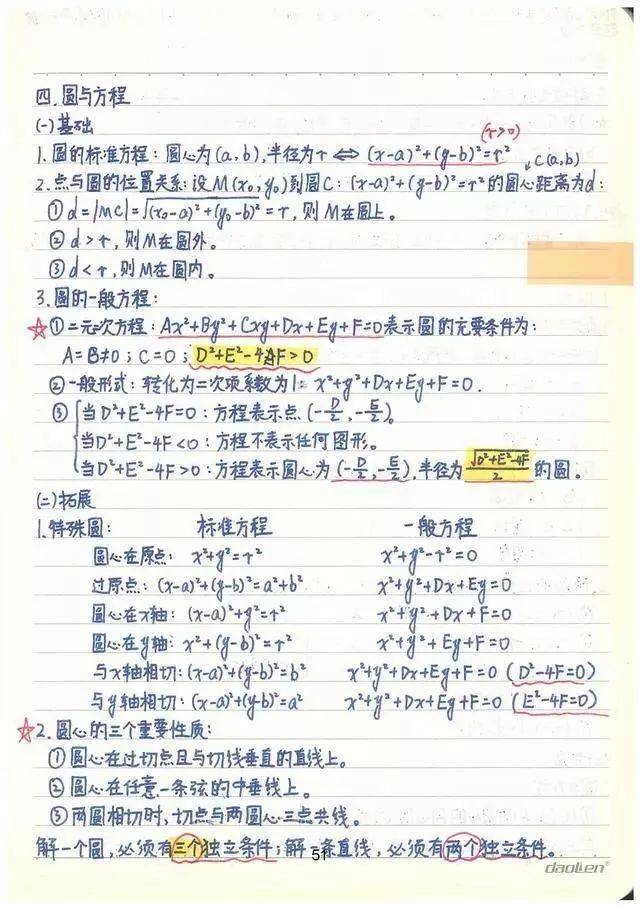 四.圆与方程
(一)基础
(r>0)
1.圆的标准方程：圆心为(a,b),半径为r⇔(x-a)²+(y-b)²=r²
C(a,b)
2.点与圆的位置关系：设M(x₀,y₀)到圆C：(x-a)²+(y-b)²=r²的圆心距离为d：
①d=|MC|=√(x₀-a)²+(y₀-b)²=r，则M在圆上。
②d>r，则M在圆外。
③d<r，则M在圆内。
3.圆的一般方程：
☆①二元二次方程：Ax²+By²+Cxy+Dx+Ey+F=0表示圆的充要条件为：
A=B≠0；C=0；D²+E²-4AF>0
②一般形式：转化为二次项系数为1：x²+y²+Dx+Ey+F=0.
③{当D²+E²-4F=0：方程表示点(-D/2,-E/2)。
当D²+E²-4F<0：方程不表示任何图形。
当D²+E²-4F>0：方程表示圆心为(-D/2,-E/2),半径为√D²+E²-4F/2的圆。
(二)拓展
1.特殊圆： 标准方程 一般方程
圆心在原点：x²+y²=r² x²+y²-r²=0
过原点：(x-a)²+(y-b)²=a²+b² x²+y²+Dx+Ey=0
圆心在x轴：(x-a)²+y²=r² x²+y²+Dx+F=0
圆心在y轴：x²+(y-b)²=r² x²+y²+Ey+F=0
与x轴相切：(x-a)²+(y-b)²=b² x²+y²+Dx+Ey+F=0(D²-4F=0)
与y轴相切：(x-a)²+(y-b)²=a² x²+y²+Dx+Ey+F=0(E²-4F=0)
☆2.圆心的三个重要性质：
①圆心在过切点且与切线垂直的直线上。
②圆心在任意一条弦的中垂线上。
③两圆相切时，切点与两圆心三点共线。
解一个圆，必须有三个独立条件；解一条直线，必须有两个独立条件。
51
daolien